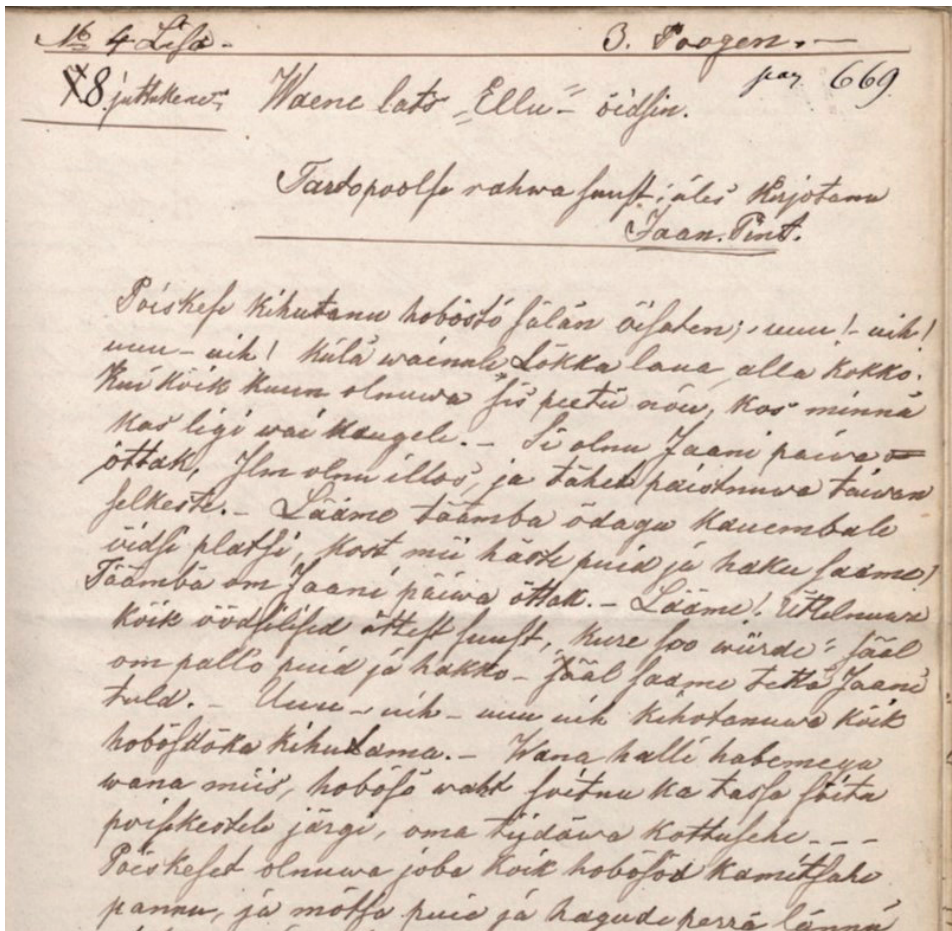 № 4 Lisa.
3. Poogen.
pag 669.
8. juttukene.
Waene lats „Ellu“ öidsin.
Tartopoolse rahwa suust; üles kirjotanu
Jaan. Pint.
Poiskese kihutanu hobõstõ sälän õisaten; „uuu! – uih!
uuu – uih! külä wainule Lõkka laua alla kokko.
Kui kõik kuun olnuwa sis peetu nõu, kos minnä
kas ligi wai kaugele. – Si olnu Jaani päiwa
õttak, Ilm olnu illos, ja tähed paistnuwa taiwan
selkeste. – Lääme täämba õdagu kauembale
öidse platsi, kost mii häste puid ja haku saame!
Täämbä om Jaani päiwa õttak. – Lääme! ütelnuwa
kõik öödsilised üttest suust, kure soo wiirde; sääl
om pallo puid ja hakko – sääl saame tetta Jaani
tuld. – Uuu – uih – uuu uih kihotanuwa kõik
hobõsdõka kihutama. – Wana halli habemega
wana miis, hobõsõ waht sõitnu ka tassa sõita
poiskestele järgi, oma tijdäwa kottusehe - - -
Poiskeset olnuwa joba kõik hobõsõd kamitsahe
pannu, ja mõtsa puie ja hagude perrä lännü